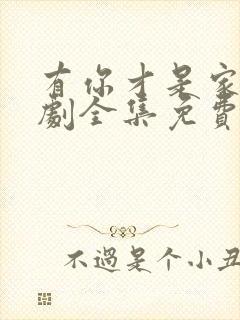 有你才是家
劇全集免費
不過是个小丑